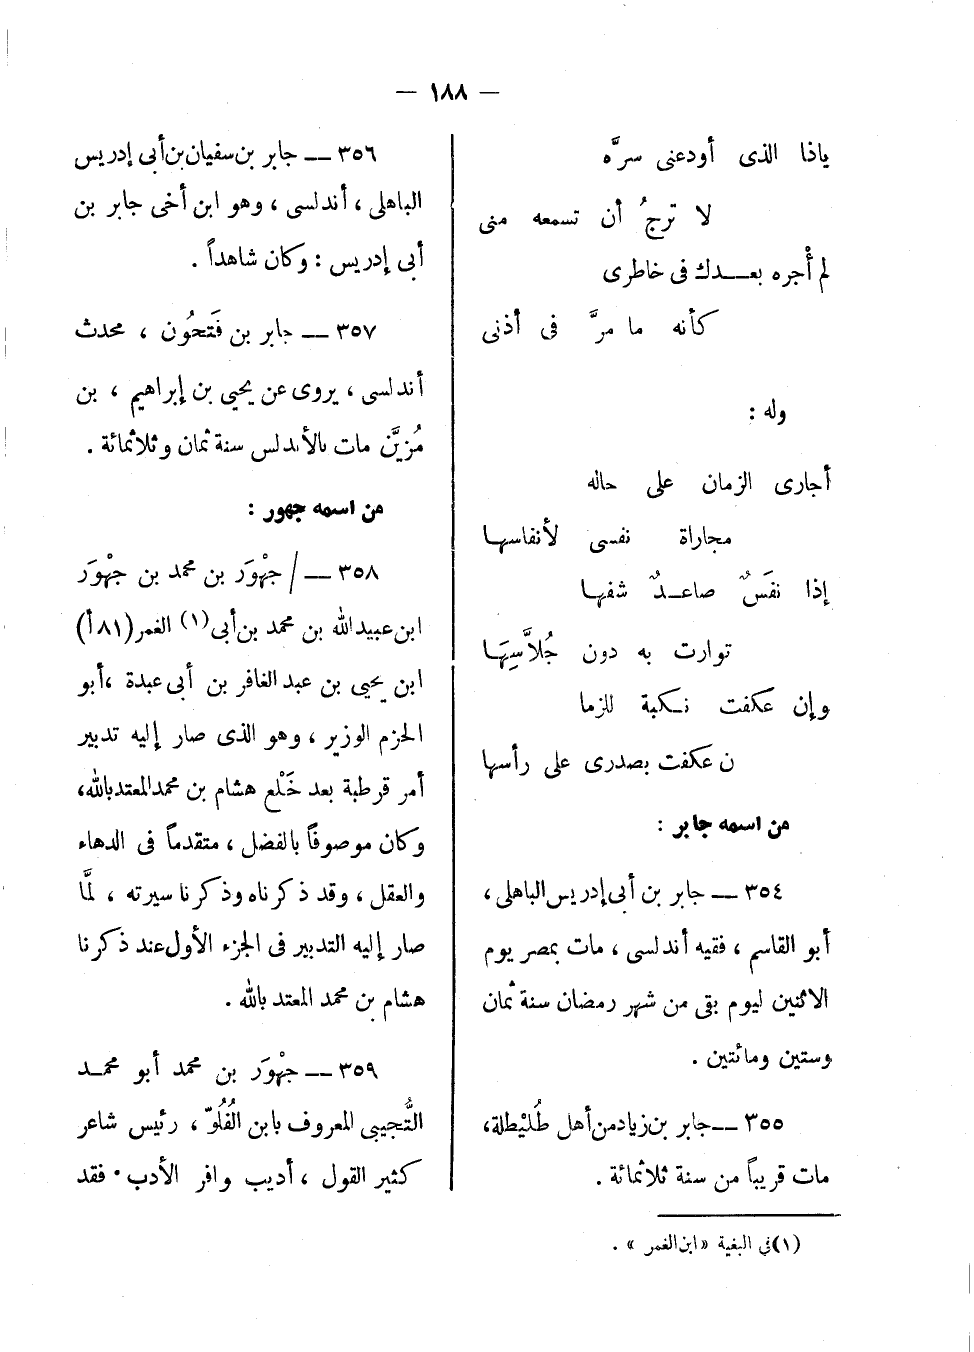 — ١٨٨ —
ياذا الذى أودعنى سرَّه
لا ترجُ أن تسمعه منى
لم أُجره بعـــدك فى خاطرى
كأنه ما مرَّ فى أذنى
وله :
أجارى الزمان على حاله
مجاراة نفسى لأنفاسها
إذا نفَسٌ صاعـدٌ شفها
توارت به دون جُلاَّسِهَا
وإن عكفت نـكبة للزما
ن عكفت بصدرى على رأسها
من اسمه جابر :
٣٥٤ — جابر بن أبى إدريس الباهلى ،
أبو القاسم ، فقيه أندلسى ، مات بمصر يوم
الاثنين ليوم بقى من شهر رمضان سنة ثمان
وستين ومائتين .
٣٥٥ — جابر بن زياد من أهل طُلَيْطلة،
مات قريباً من سنة ثلاثمائة .
(١) فى البغية « ابن الغمر » .
٣٥٦ — جابر بن سفيان بن أبى إدريس
الباهلى ، أندلسى ، وهو ابن أخى جابر بن
أبى إدريس : وكان شاهداً .
٣٥٧ — جابر بن فَتَحُون ، محدث
أندلسى ، يروى عن يحيى بن إبراهيم ، بن
مُزيَّن مات بالأندلس سنة ثمان وثلاثمائة .
من اسمه جهور :
٣٥٨ — / جهْوَر بن محمد بن جهْوَر
ابن عبيد الله بن محمد بن أبى (١) الغمر (٨١ أ)
ابن يحيى بن عبد الغافر بن أبى عبدة ، أبو
الحزم الوزير ، وهو الذى صار إليه تدبير
أمر قرطبة بعد خَلْع هشام بن محمد المعتد بالله،
وكان موصوفاً بالفضل ، متقدماً فى الدهاء
والعقل ، وقد ذكرناه وذكرنا سيرته ، لمَّا
صار إليه التدبير فى الجزء الأول عند ذكرنا
هشام بن محمد المعتد بالله .
٣٥٩ — جهْوَر بن محمد أبو محمـد
التُّجيبى المعروف بابن الفُلُوّ ، رئيس شاعر
كثير القول ، أديب وافر الأدب . فقد